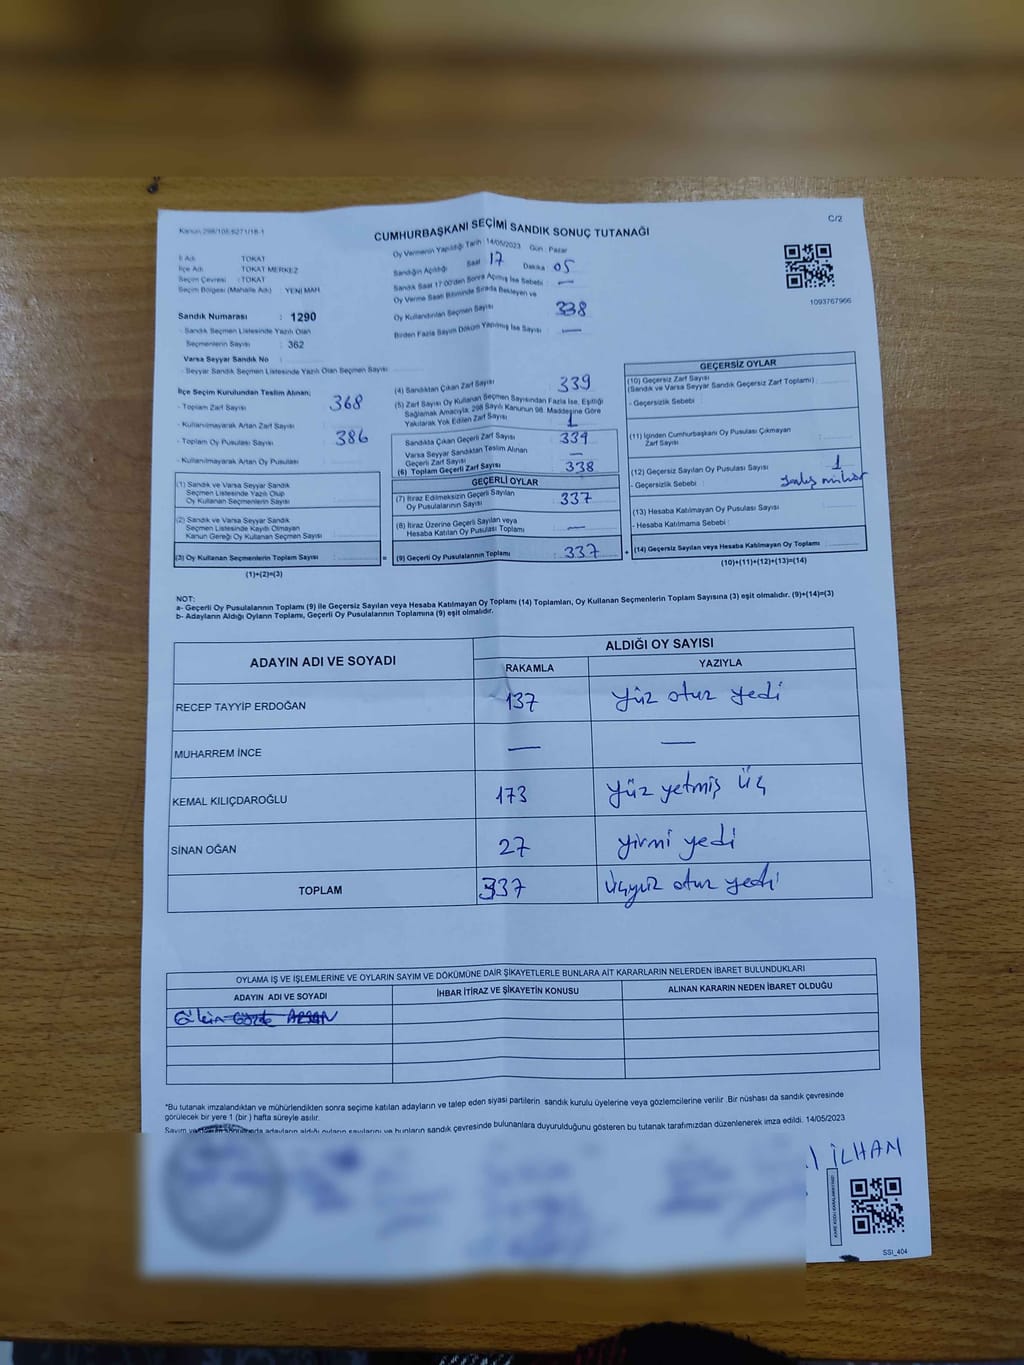 Kanun 298/105-6271/18-1
C/2
CUMHURBAŞKANI SEÇİMİ SANDIK SONUÇ TUTANAĞI
İl Adı : TOKAT
İlçe Adı : TOKAT MERKEZ
Seçim Çevresi : TOKAT
Seçim Bölgesi (Mahalle Adı) : YENİ MAH
Sandık Numarası : 1290
- Sandık Seçmen Listesinde Yazılı Olan
Seçmenlerin Sayısı : 362
Varsa Seyyar Sandık No
- Seyyar Sandık Seçmen Listesinde Yazılı Olan Seçmen Sayısı
Oy Vermenin Yapıldığı Tarih 14/05/2023 Gün : Pazar
Sandığın Açıldığı Saat 17 Dakika 05
Sandık Saat 17:00'den Sonra Açılmış İse Sebebi : —
Oy Verme Saati Bitiminde Sırada Bekleyen ve
Oy Kullandırılan Seçmen Sayısı 338
Birden Fazla Sayım Döküm Yapılmış İse Sayısı —
1093767966
İlçe Seçim Kurulundan Teslim Alınan;
- Toplam Zarf Sayısı 368
- Kullanılmayarak Artan Zarf Sayısı
- Toplam Oy Pusulası Sayısı 386
- Kullanılmayarak Artan Oy Pusulası
(1) Sandık ve Varsa Seyyar Sandık
Seçmen Listesinde Yazılı Olup
Oy Kullanan Seçmenlerin Sayısı
(2) Sandık ve Varsa Seyyar Sandık
Seçmen Listesinde Kayıtlı Olmayan
Kanun Gereği Oy Kullanan Seçmen Sayısı
(3) Oy Kullanan Seçmenlerin Toplam Sayısı
(1)+(2)=(3)
(4) Sandıktan Çıkan Zarf Sayısı 339
(5) Zarf Sayısı Oy Kullanan Seçmen Sayısından Fazla İse, Eşitliği
Sağlamak Amacıyla, 298 Sayılı Kanunun 98. Maddesine Göre
Yakılarak Yok Edilen Zarf Sayısı 1
Sandıkta Çıkan Geçerli Zarf Sayısı 339
Varsa Seyyar Sandıktan Teslim Alınan
Geçerli Zarf Sayısı —
(6) Toplam Geçerli Zarf Sayısı 338
GEÇERLİ OYLAR
(7) İtiraz Edilmeksizin Geçerli Sayılan
Oy Pusulalarının Sayısı 337
(8) İtiraz Üzerine Geçerli Sayılan veya
Hesaba Katılan Oy Pusulası Toplamı —
= (9) Geçerli Oy Pusulalarının Toplamı 337
GEÇERSİZ OYLAR
(10) Geçersiz Zarf Sayısı
(Sandık ve Varsa Seyyar Sandık Geçersiz Zarf Toplamı)
- Geçersizlik Sebebi
(11) İçinden Cumhurbaşkanı Oy Pusulası Çıkmayan
Zarf Sayısı
(12) Geçersiz Sayılan Oy Pusulası Sayısı 1
- Geçersizlik Sebebi : yanlış mühür
(13) Hesaba Katılmayan Oy Pusulası Sayısı
- Hesaba Katılmama Sebebi :
+ (14) Geçersiz Sayılan veya Hesaba Katılmayan Oy Toplamı
(10)+(11)+(12)+(13)=(14)
NOT:
a- Geçerli Oy Pusulalarının Toplamı (9) ile Geçersiz Sayılan veya Hesaba Katılmayan Oy Toplamı (14) Toplamları, Oy Kullanan Seçmenlerin Toplam Sayısına (3) eşit olmalıdır. (9)+(14)=(3)
b- Adayların Aldığı Oyların Toplamı, Geçerli Oy Pusulalarının Toplamına (9) eşit olmalıdır.
ADAYIN ADI VE SOYADI
ALDIĞI OY SAYISI
RAKAMLA YAZIYLA
RECEP TAYYİP ERDOĞAN 137 yüz otuz yedi
MUHARREM İNCE — —
KEMAL KILIÇDAROĞLU 173 yüz yetmiş üç
SİNAN OĞAN 27 yirmi yedi
TOPLAM 337 üçyüz otuz yedi
OYLAMA İŞ VE İŞLEMLERİNE VE OYLARIN SAYIM VE DÖKÜMÜNE DAİR ŞİKAYETLERLE BUNLARA AİT KARARLARIN NELERDEN İBARET BULUNDUKLARI
ADAYIN ADI VE SOYADI İHBAR İTİRAZ VE ŞİKAYETİN KONUSU ALINAN KARARIN NEDEN İBARET OLDUĞU
*Bu tutanak imzalandıktan ve mühürlendikten sonra seçime katılan adayların ve talep eden siyasi partilerin sandık kurulu üyelerine veya gözlemcilerine verilir. Bir nüshası da sandık çevresinde
görülecek bir yere 1 (bir ) hafta süreyle asılır.
Sayım ve adayların aldığı oyların sayılarını ve bunların sandık çevresinde bulunanlara duyurulduğunu gösteren bu tutanak tarafımızdan düzenlenerek imza edildi. 14/05/2023
İLHAN
SSİ_404